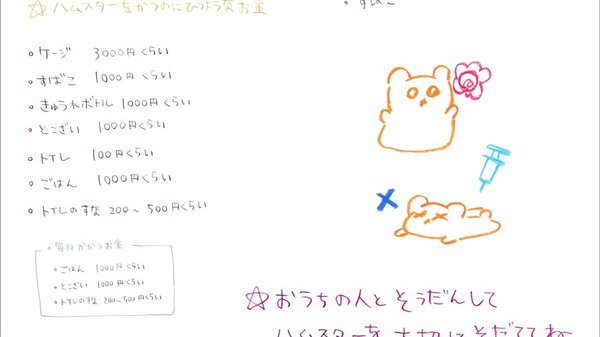 ☆ ハムスターをかうのにひつようなお金
・すばこ
・ケージ 3000円くらい
・すばこ 1000円くらい
・きゅう水ボトル 1000円くらい
・とこざい 1000円くらい
・トイレ 100円くらい
・ごはん 1000円くらい
・トイレのすな 200〜500円くらい
・毎月かかるお金
・ごはん 1000円くらい
・とこざい 1000円くらい
・トイレのすな 200〜500円くらい
☆おうちの人とそうだんして
ハムスターを大切にそだててね